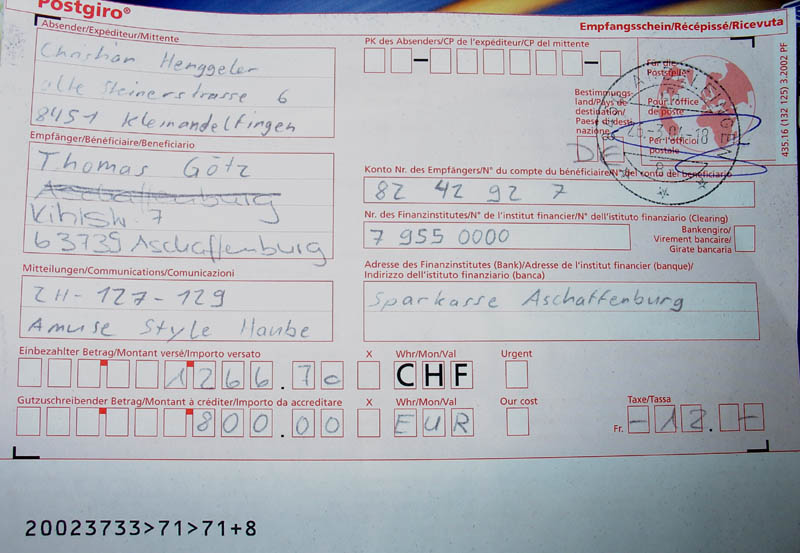 Postgiro®
Empfangsschein/Récépissé/Ricevuta
Absender/Expéditeur/Mittente
Christian Henggeler
alte Steinerstrasse 6
8451 Kleinandelfingen
PK des Absenders/CP de l'expéditeur/CP del mittente
Für die
Poststelle
Bestimmungs-
land/Pays de
destination/
Paese di desti-
nazione
Pour l'office
de poste
Per l'ufficio
postale
DE
26.-3.04-18
435.16 (132 125) 3.2002 PF
Empfänger/Bénéficiaire/Beneficiario
Thomas Götz
Aschaffenburg
7
63739 Aschaffenburg
Konto Nr. des Empfängers/N° du compte du bénéficiaire/N° del conto del beneficiario
82 42 92 7
Nr. des Finanzinstitutes/N° de l'institut financier/N° dell'istituto finanziario (Clearing)
7 955 0000
Bankengiro/
Virement bancaire/
Girata bancaria
Mitteilungen/Communications/Comunicazioni
ZH-127-129
Amuse Style Haube
Adresse des Finanzinstitutes (Bank)/Adresse de l'institut financier (banque)/
Indirizzo dell'istituto finanziario (banca)
Sparkasse Aschaffenburg
Einbezahlter Betrag/Montant versé/Importo versato
X
Whr/Mon/Val
Urgent
1266.70
CHF
Gutzuschreibender Betrag/Montant à créditer/Importo da accreditare
X
Whr/Mon/Val
Our cost
Taxe/Tassa
800.00
EUR
Fr. -12.--
20023733>71>71+8